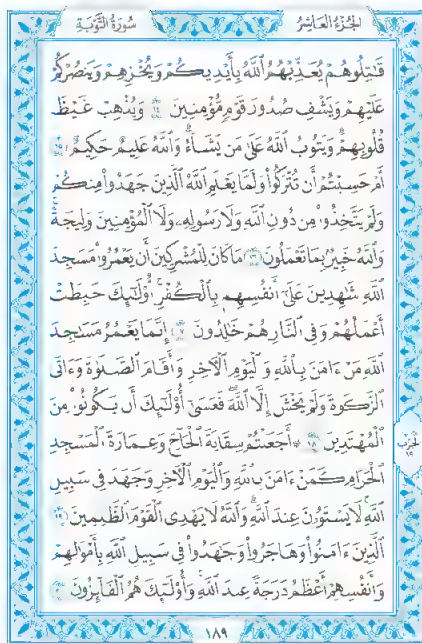 الجُزءُ العَاشِرُ
سُورَةُ التَّوْبَةِ
قَٰتِلُوهُمْ يُعَذِّبْهُمُ ٱللَّهُ بِأَيْدِيكُمْ وَيُخْزِهِمْ وَيَنصُرْكُمْ
عَلَيْهِمْ وَيَشْفِ صُدُورَ قَوْمٍ مُّؤْمِنِينَ ١٤ وَيُذْهِبْ غَيْظَ
قُلُوبِهِمْ ۗ وَيَتُوبُ ٱللَّهُ عَلَىٰ مَن يَشَآءُ ۗ وَٱللَّهُ عَلِيمٌ حَكِيمٌ ١٥
أَمْ حَسِبْتُمْ أَن تُتْرَكُوا۟ وَلَمَّا يَعْلَمِ ٱللَّهُ ٱلَّذِينَ جَٰهَدُوا۟ مِنكُمْ
وَلَمْ يَتَّخِذُوا۟ مِن دُونِ ٱللَّهِ وَلَا رَسُولِهِۦ وَلَا ٱلْمُؤْمِنِينَ وَلِيجَةً ۚ
وَٱللَّهُ خَبِيرٌۢ بِمَا تَعْمَلُونَ ١٦ مَا كَانَ لِلْمُشْرِكِينَ أَن يَعْمُرُوا۟ مَسَٰجِدَ
ٱللَّهِ شَٰهِدِينَ عَلَىٰٓ أَنفُسِهِم بِٱلْكُفْرِ ۚ أُو۟لَٰٓئِكَ حَبِطَتْ
أَعْمَٰلُهُمْ وَفِى ٱلنَّارِ هُمْ خَٰلِدُونَ ١٧ إِنَّمَا يَعْمُرُ مَسَٰجِدَ
ٱللَّهِ مَنْ ءَامَنَ بِٱللَّهِ وَٱلْيَوْمِ ٱلْءَاخِرِ وَأَقَامَ ٱلصَّلَوٰةَ وَءَاتَى
ٱلزَّكَوٰةَ وَلَمْ يَخْشَ إِلَّا ٱللَّهَ ۖ فَعَسَىٰٓ أُو۟لَٰٓئِكَ أَن يَكُونُوا۟ مِنَ
ٱلْمُهْتَدِينَ ١٨ ۞ أَجَعَلْتُمْ سِقَايَةَ ٱلْحَآجِّ وَعِمَارَةَ ٱلْمَسْجِدِ
ٱلْحَرَامِ كَمَنْ ءَامَنَ بِٱللَّهِ وَٱلْيَوْمِ ٱلْءَاخِرِ وَجَٰهَدَ فِى سَبِيلِ
ٱللَّهِ ۚ لَا يَسْتَوُۥنَ عِندَ ٱللَّهِ ۗ وَٱللَّهُ لَا يَهْدِى ٱلْقَوْمَ ٱلظَّٰلِمِينَ ١٩
ٱلَّذِينَ ءَامَنُوا۟ وَهَاجَرُوا۟ وَجَٰهَدُوا۟ فِى سَبِيلِ ٱللَّهِ بِأَمْوَٰلِهِمْ
وَأَنفُسِهِمْ أَعْظَمُ دَرَجَةً عِندَ ٱللَّهِ ۚ وَأُو۟لَٰٓئِكَ هُمُ ٱلْفَآئِزُونَ ٢٠
الحِزْب
١٩
١٨٩